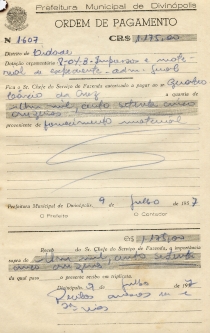 Prefeitura Municipal de Divinópolis
ORDEM DE PAGAMENTO
Nº 1607 CR$ 1.175,00
Distrito de
Dotação orçamentária 8-04-3-Impressos e mate-
rial de expediente - adm.
Fica o Sr. Chefe do Serviço de Fazenda autorizado a pagar ao Sr.
a quantia de
hum mil, cento setenta cinco
cruzeiros
proveniente de fornecimento material
Prefeitura Municipal de Divinópolis, 9 de julho de 1957
O Prefeito O Contador
CR$ 1.175,00
Recebi do Sr. Chefe do Serviço de Fazenda, a importância
supra de hum mil, cento setenta
cinco cruzeiros
da qual passo o presente recibo em triplicata.
Divinópolis, 9 de julho de 1957